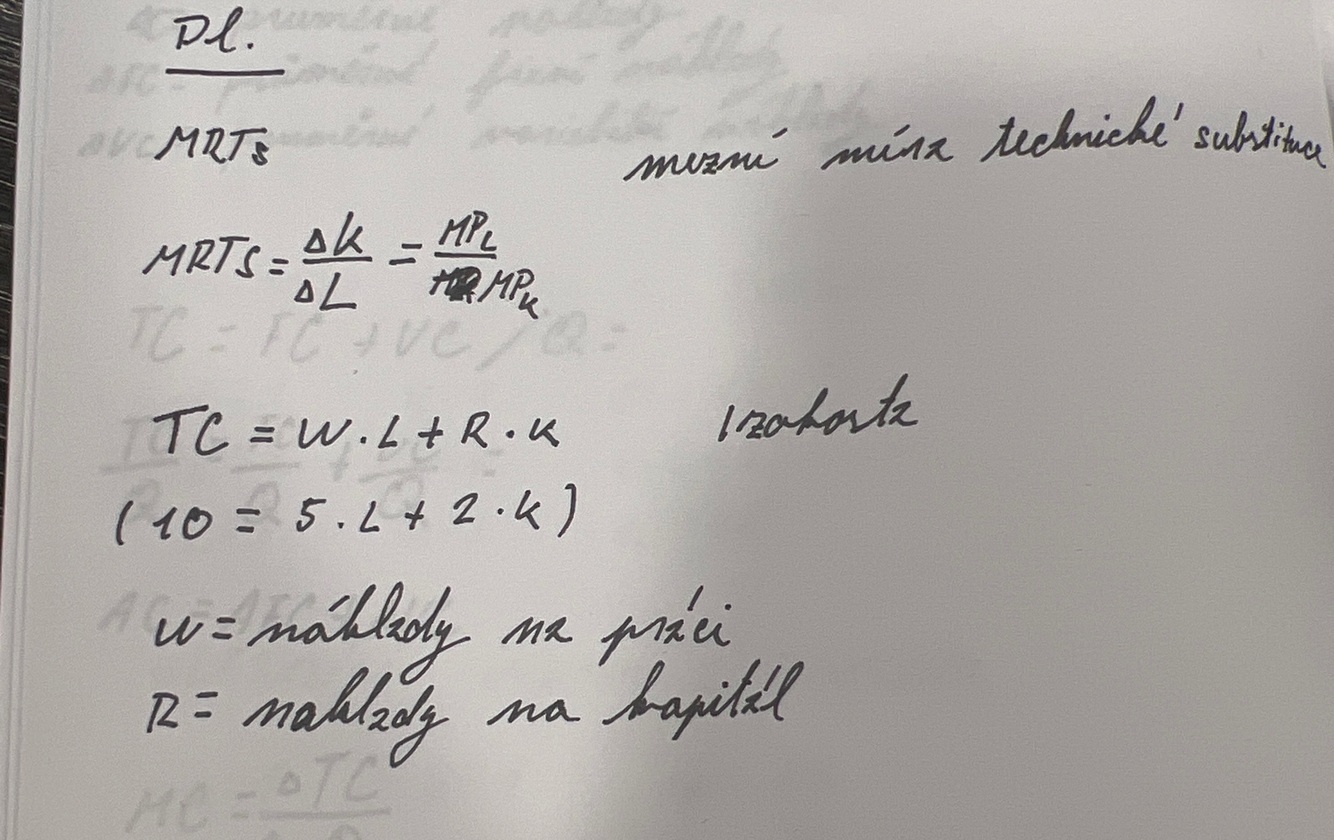 Dl.
MRTS mezní míra technické substituce
MRTS = ΔK/ΔL = MPL/MPK
TC = W·L + R·K Izokosta
(10 = 5·L + 2·K)
W = náklady na práci
R = naklady na kapitál